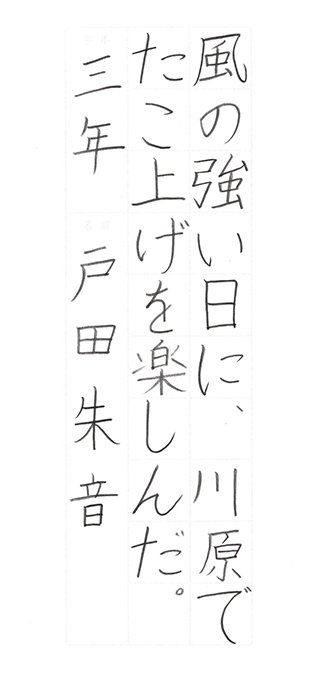 風の強い日に、川原で
たこ上げを楽しんだ。
三年 戸田朱音